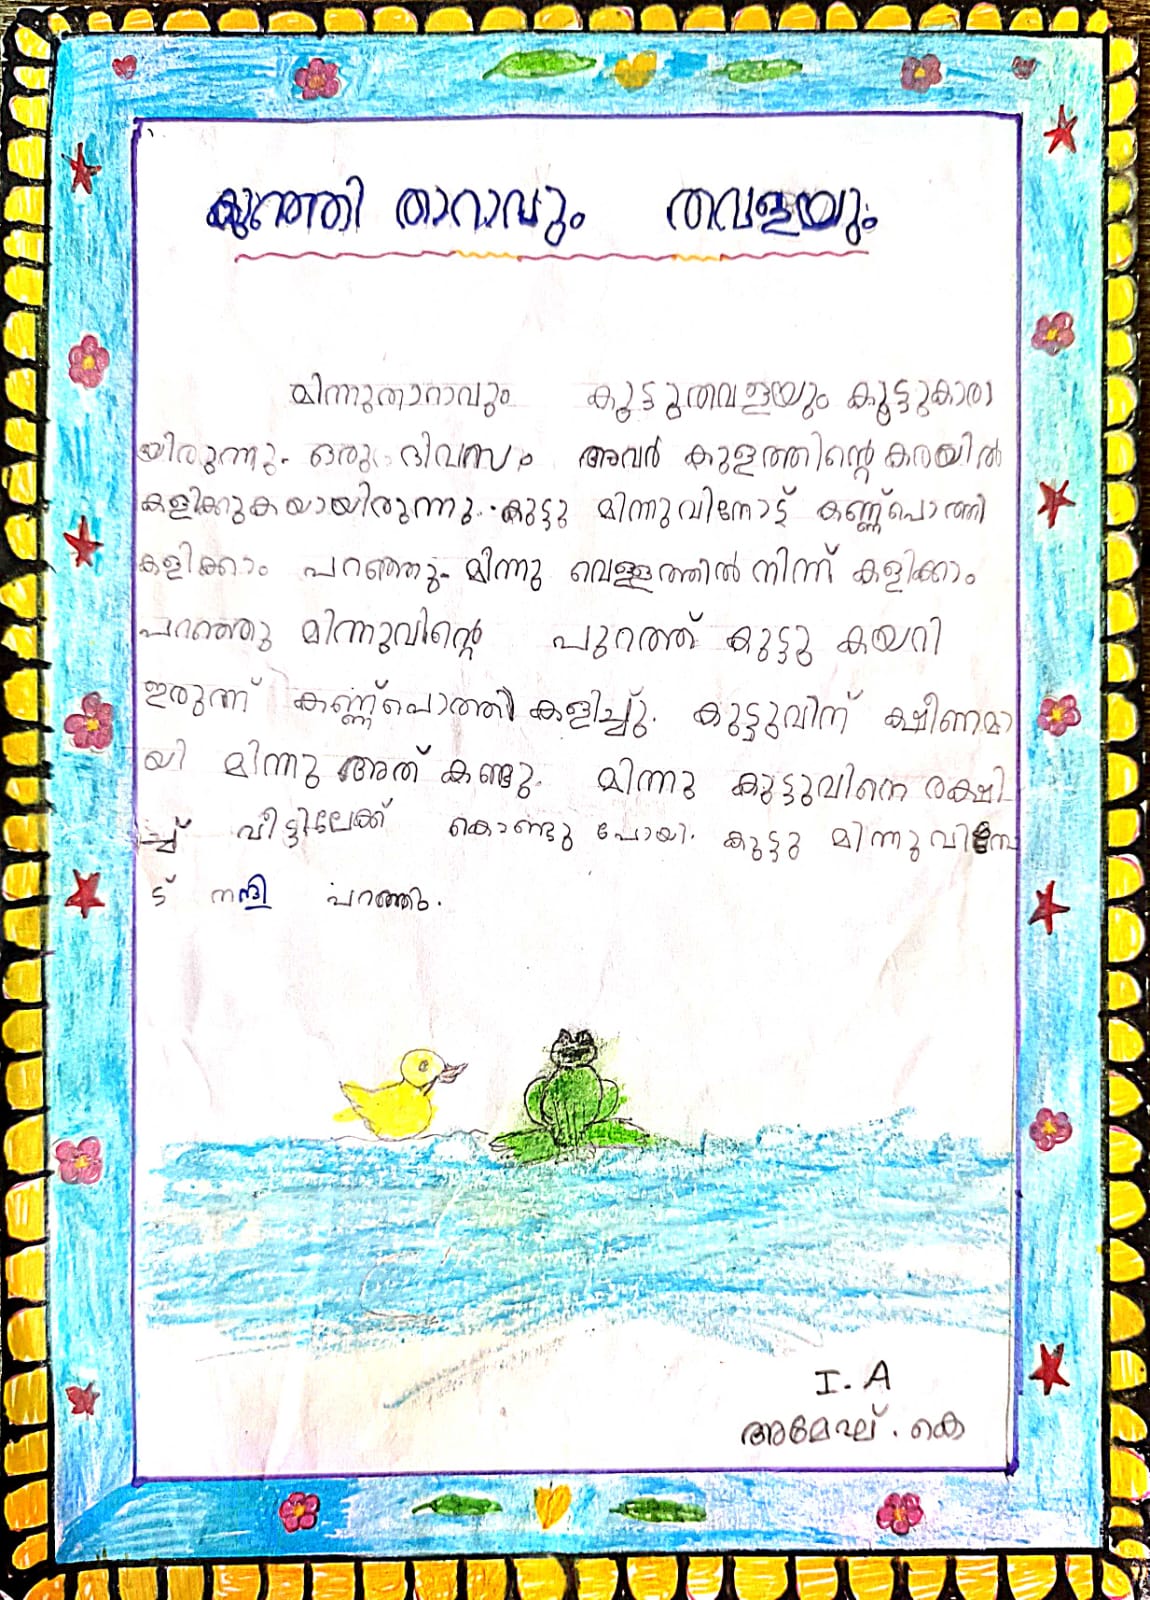 കുഞ്ഞി താറാവും തവളയും
മിന്നുതാറാവും കുട്ടുതവളയും കൂട്ടുകാരാ
യിരുന്നു. ഒരു ദിവസം അവർ കുളത്തിന്റെ കരയിൽ
കളിക്കുകയായിരുന്നു. കുട്ടു മിന്നുവിനോട് കണ്ണ്പൊത്തി
കളിക്കാം പറഞ്ഞു. മിന്നു വെള്ളത്തിൽ നിന്ന് കളിക്കാം
പറഞ്ഞു മിന്നുവിന്റെ പുറത്ത് കുട്ടു കയറി
ഇരുന്ന് കണ്ണ്പൊത്തി കളിച്ചു. കുട്ടുവിന് ക്ഷീണമാ
യി മിന്നു അത് കണ്ടു. മിന്നു കുട്ടുവിനെ രക്ഷി
ച്ച് വീട്ടിലേക്ക് കൊണ്ടു പോയി. കുട്ടു
ട് നന്ദി പറഞ്ഞു.
I. A
അമേഘ്. കെ